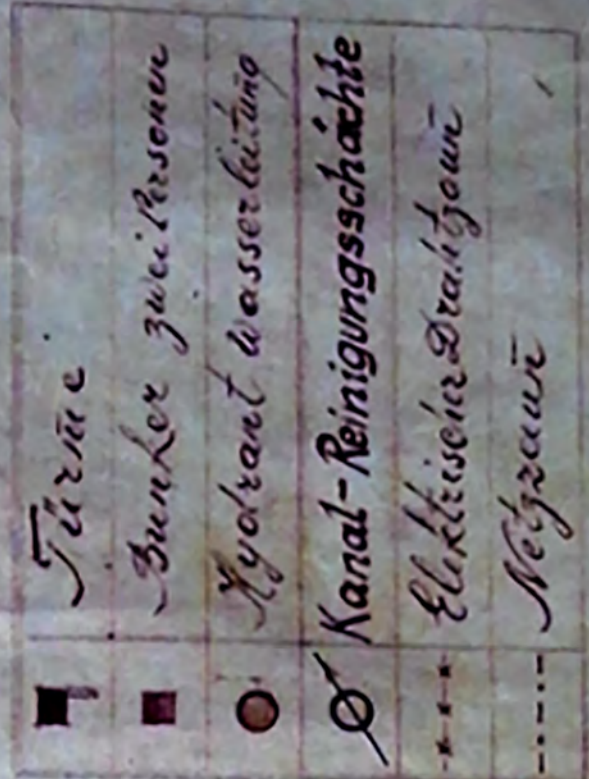 Türme
Bunker zwei Personen
Hydrant Wasserleitung
Kanal-Reinigungsschächte
Elektrischer Drahtzaun
Netzzaun